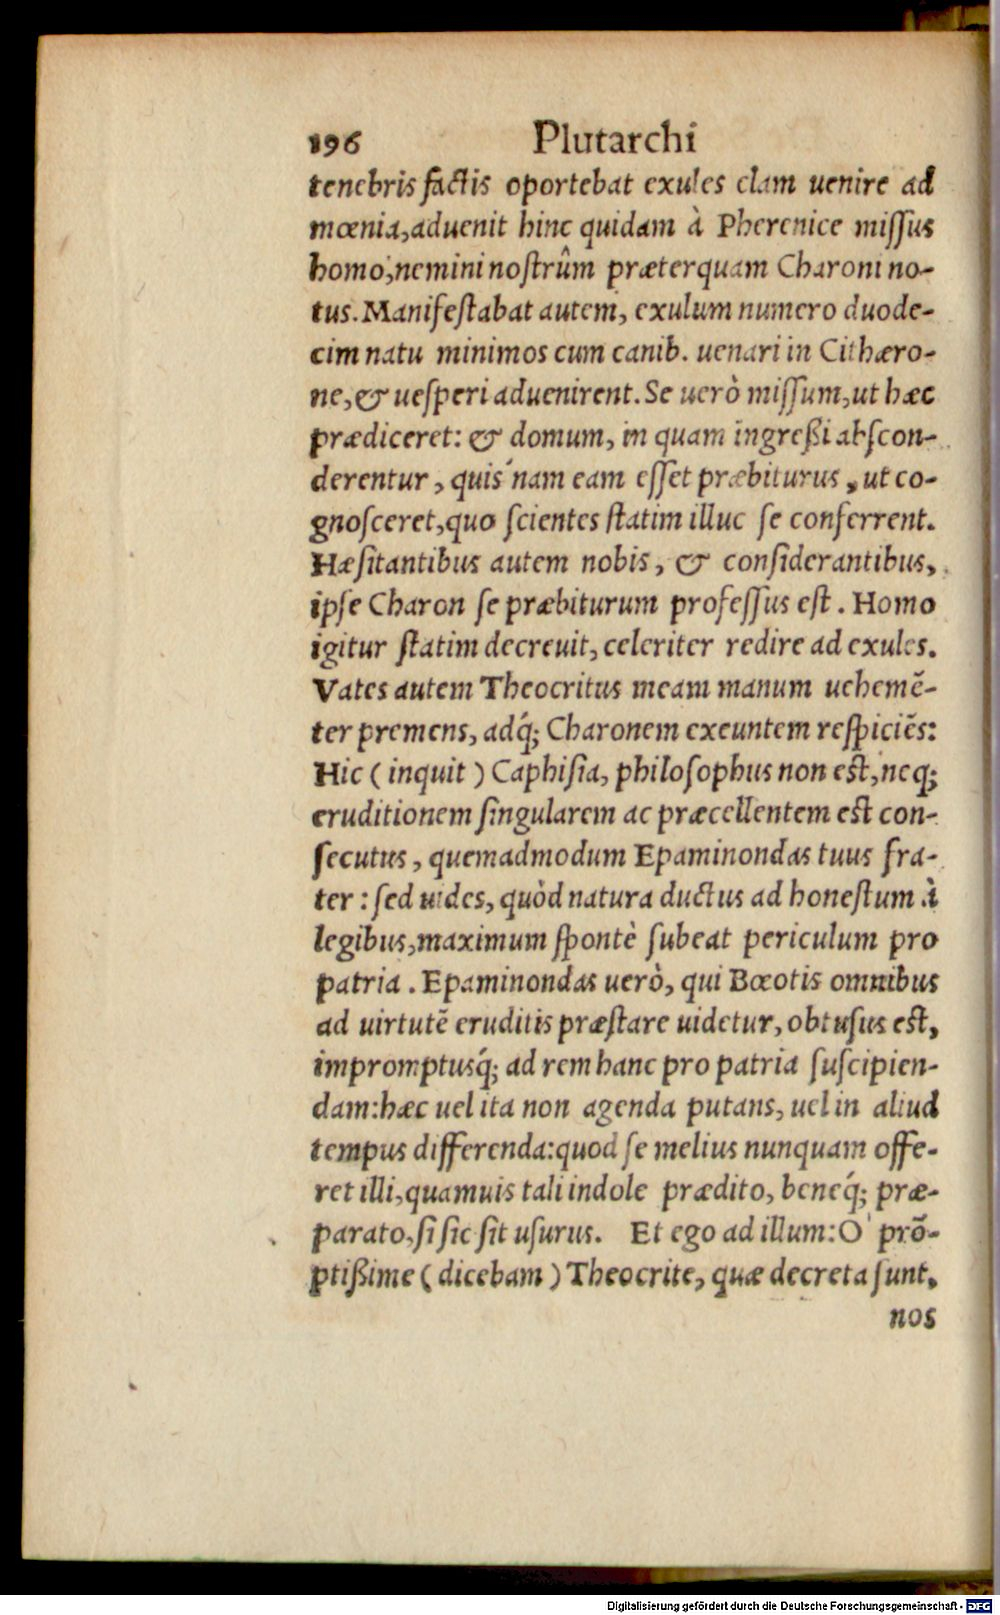 196 Plutarchi
tenebris factis oportebat exules clam uenire ad
mœnia, aduenit hinc quidam à Pherenice missus
homo, nemini nostrûm præterquam Charoni no-
tus. Manifestabat autem, exulum numero duode-
cim natu minimos cum canib. uenari in Cithæro-
ne, & uesperi aduenirent. Se uerò missum, ut hæc
prædiceret: & domum, in quam ingreßi abscon-
derentur, quis nam eam esset præbiturus, ut co-
gnosceret, quo scientes statim illuc se conferrent.
Hæsitantibus autem nobis, & considerantibus,
ipse Charon se præbiturum professus est. Homo
igitur statim decreuit, celeriter redire ad exules.
Vates autem Theocritus meam manum uehemẽ-
ter premens, adq́; Charonem exeuntem respiciẽs:
Hic (inquit) Caphisia, philosophus non est, neq;
eruditionem singularem ac præcellentem est con-
secutus, quemadmodum Epaminondas tuus fra-
ter: sed uides, quòd natura ductus ad honestum à
legibus, maximum spontè subeat periculum pro
patria. Epaminondas uerò, qui Bœotis omnibus
ad uirtutẽ eruditis præstare uidetur, obtusus est,
impromptusq́; ad rem hanc pro patria suscipien-
dam: hæc uel ita non agenda putans, uel in aliud
tempus differenda: quod se melius nunquam offe-
ret illi, quamuis tali indole prædito, beneq́; præ-
parato, si sic sit usurus. Et ego ad illum: O' prõ-
ptißime (dicebam) Theocrite, quæ decreta sunt,
nos
Digitalisierung gefördert durch die Deutsche Forschungsgemeinschaft - DFG